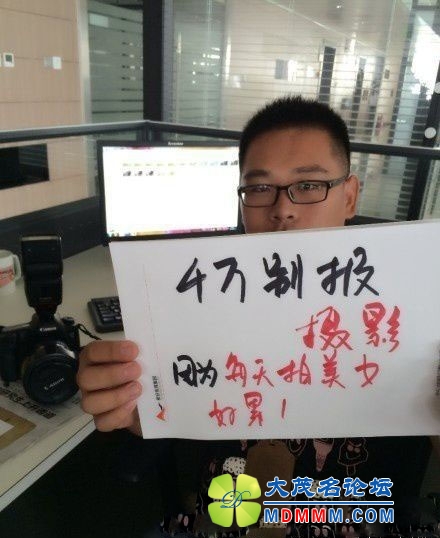 千万别报
摄影
因为每天拍美女
好累!
Canon
大茂名论坛
MDMMM.COM